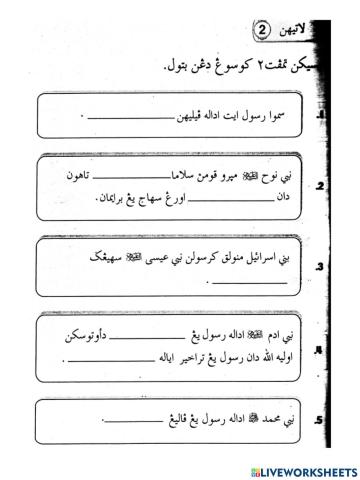 لاتيهن 2
سيکن تمڤت٢ کوسوڠ دڠن بتول.
1. سموا رسول ايت اداله ڤيليهن ____________ .
2. نبي نوح عليه السلام مڽرو قومن سلاما____________ تاهون
دان ____________ اورڠ سهاج يڠ برايمان.
3. بني اسرائيل منولق کرسولن نبي عيسى عليه السلام سهيڠݢ
____________ .
4. نبي ادم عليه السلام اداله رسول يڠ ____________ دأوتوسکن
اوليه الله دان رسول يڠ تراخير اياله ____________ .
5. نبي محمد ﷺ اداله رسول يڠ ڤاليڠ ____________.
LIVEWORKSHEETS